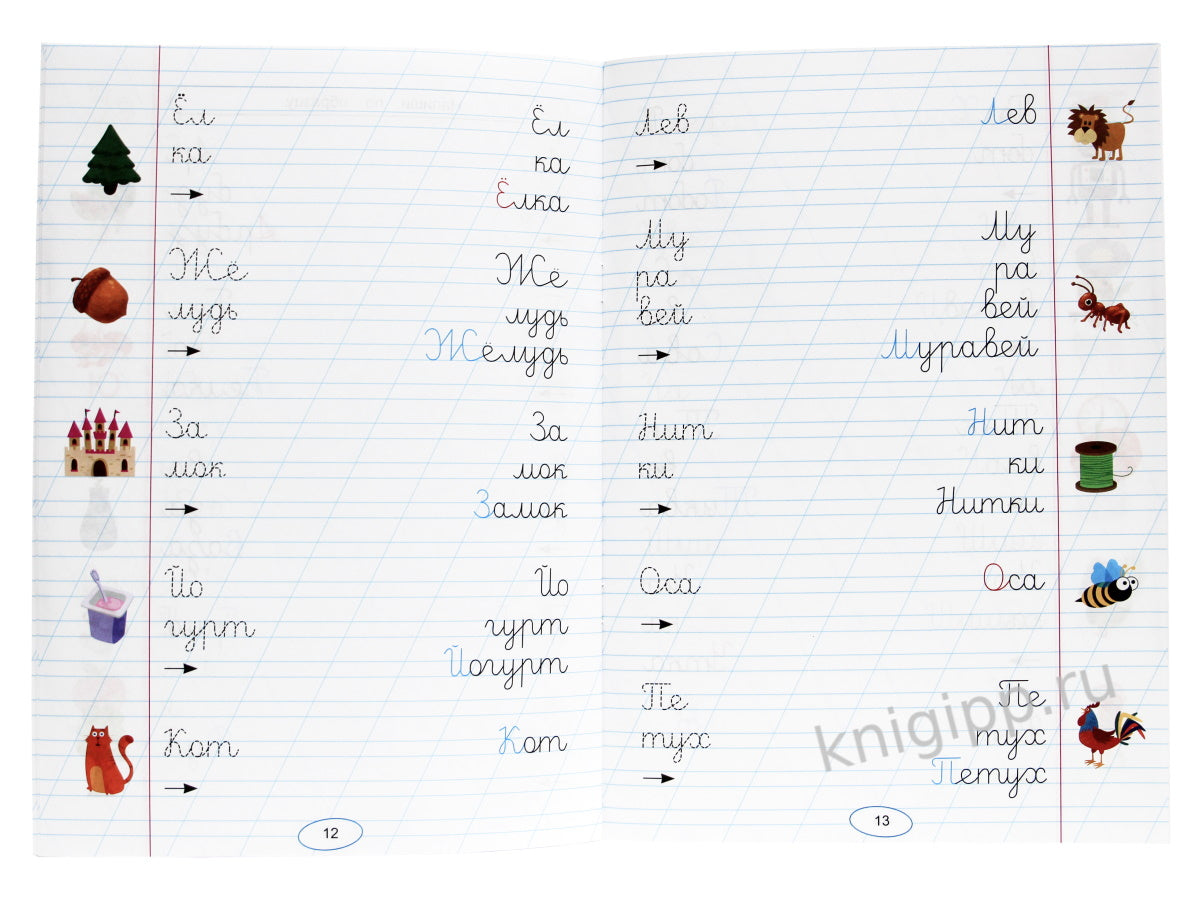 Ёл Ёл
ка ка
Ёлка
Жё Жё
лудь лудь
Жёлудь
За За
мок мок
Замок
Йо Йо
гурт гурт
Йогурт
Кот Кот
12
Лев Лев
Му Му
ра ра
вей вей
Муравей
Нит Нит
ки ки
Нитки
Оса Оса
Пе Пе
тух тух
Петух
13
knigipp.ru